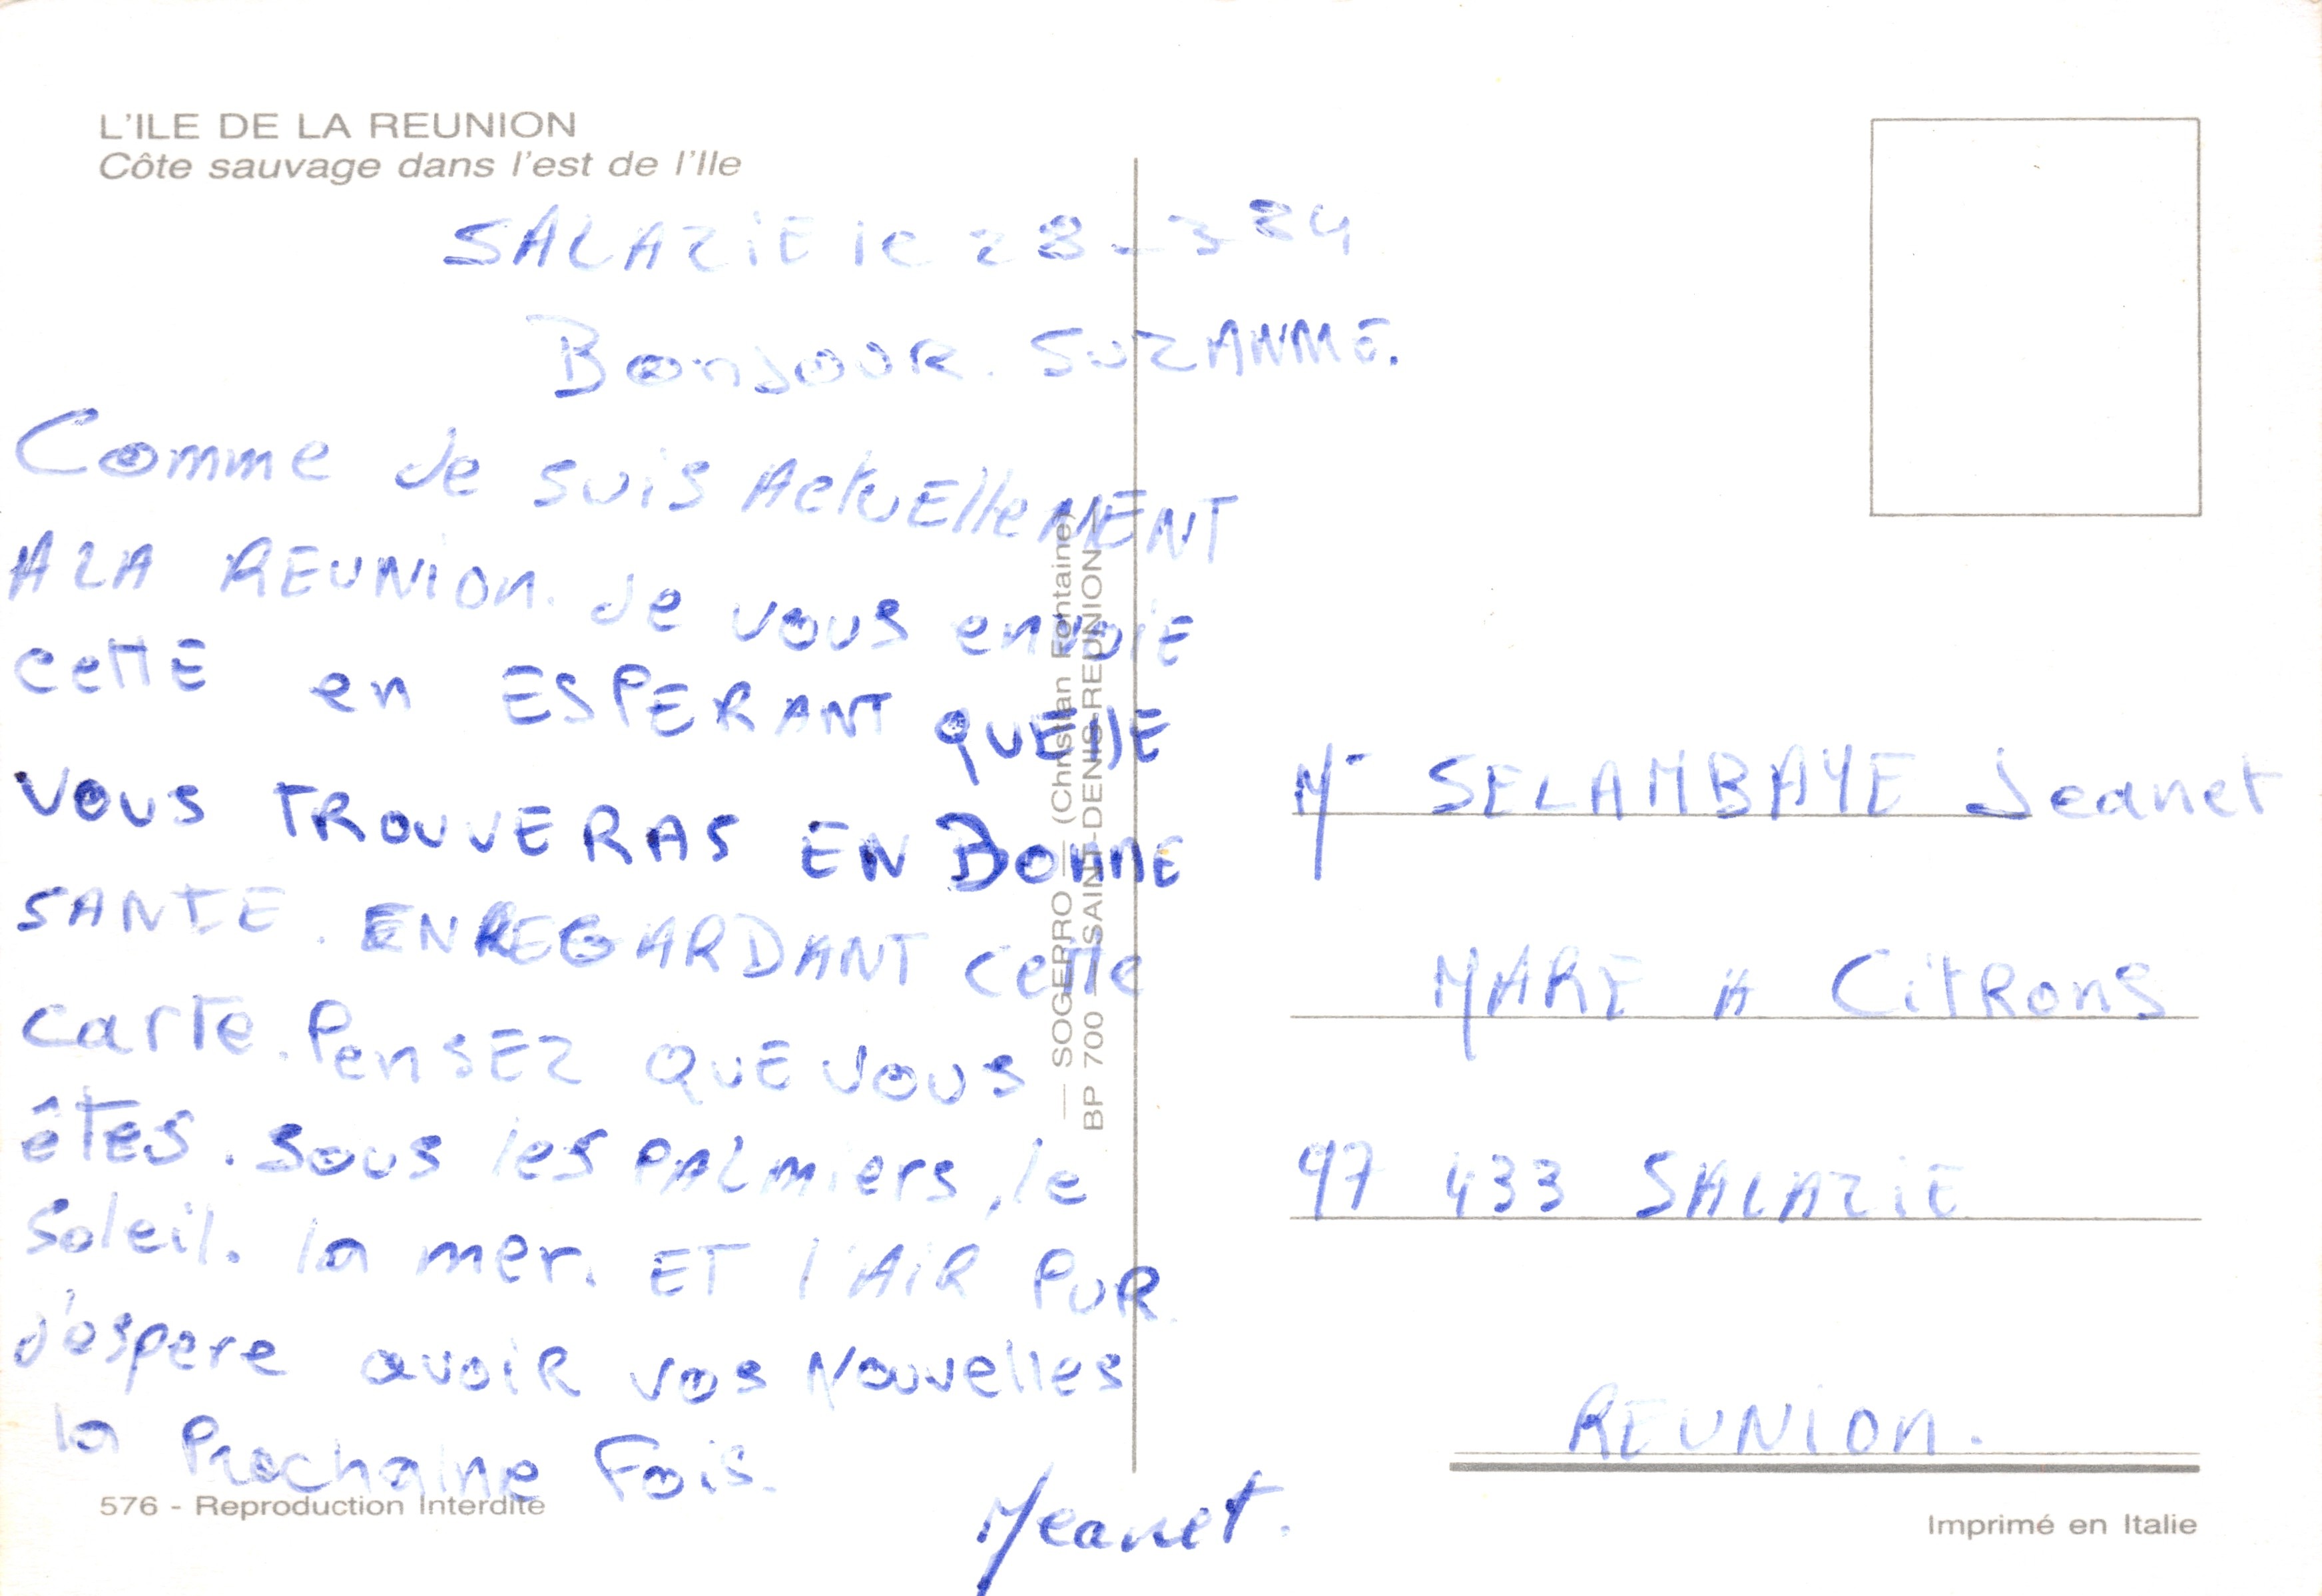 L'ILE DE LA REUNION
Côte sauvage dans l'est de l'Ile
SALAZIE le 28-3 84
Bonjour. SUZANNE.
Comme Je suis ActuElleMENT
A LA REUNION. Je vous envoie
cettE en ESPERANT QUEllE
vous TROUVERAS EN BONNE
SANTE. EN REGARDANT cette
carte. PensEZ QUE vous
êtes. sous les PALmiers, le
soleil. la mer. ET l'AiR PUR
j'espere avoiR vos Nouvelles
la Prochaine Fois.
Jeanet.
576 - Reproduction Interdite
— SOGERRO — (Christian Fontaine)
BP 700 — SAINT-DENIS-REUNION —
Mr SELAMBAYE Jeanet
MARE A CitRons
97 433 SALAZIE
REUNION.
Imprimé en Italie